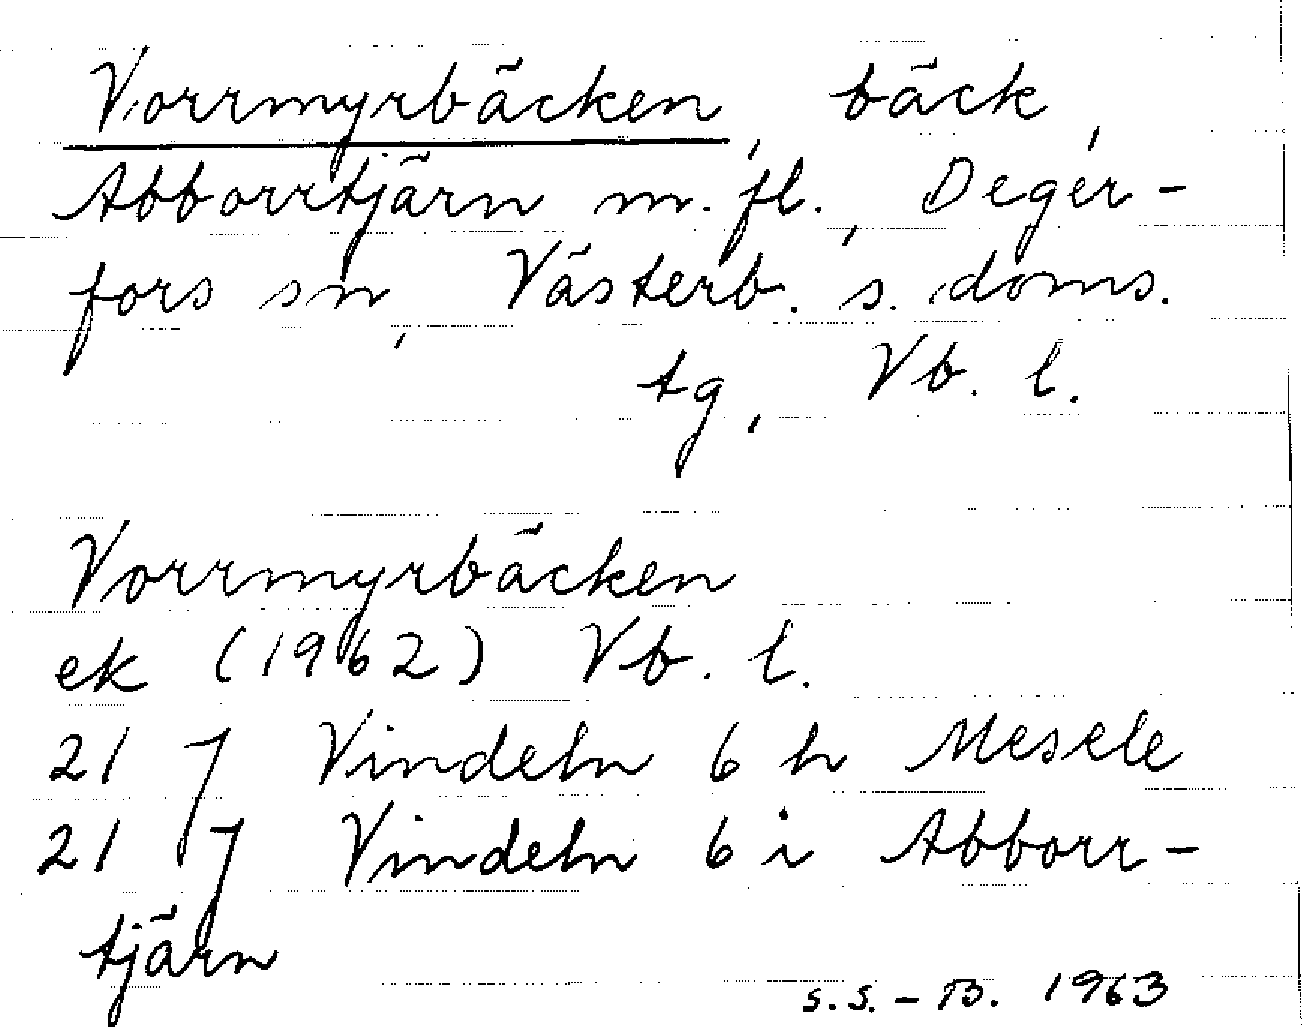 Vorrmyrbäcken, bäck,
Abborrtjärn m. fl., Deger-
fors sn, Västerb. s. doms.
tg, Vb. l.
Vorrmyrbäcken
ek (1962) Vb. l.
21 J Vindeln 6 h Mesele
21 J Vindeln 6 i Abborr-
tjärn
S.S. - B. 1963